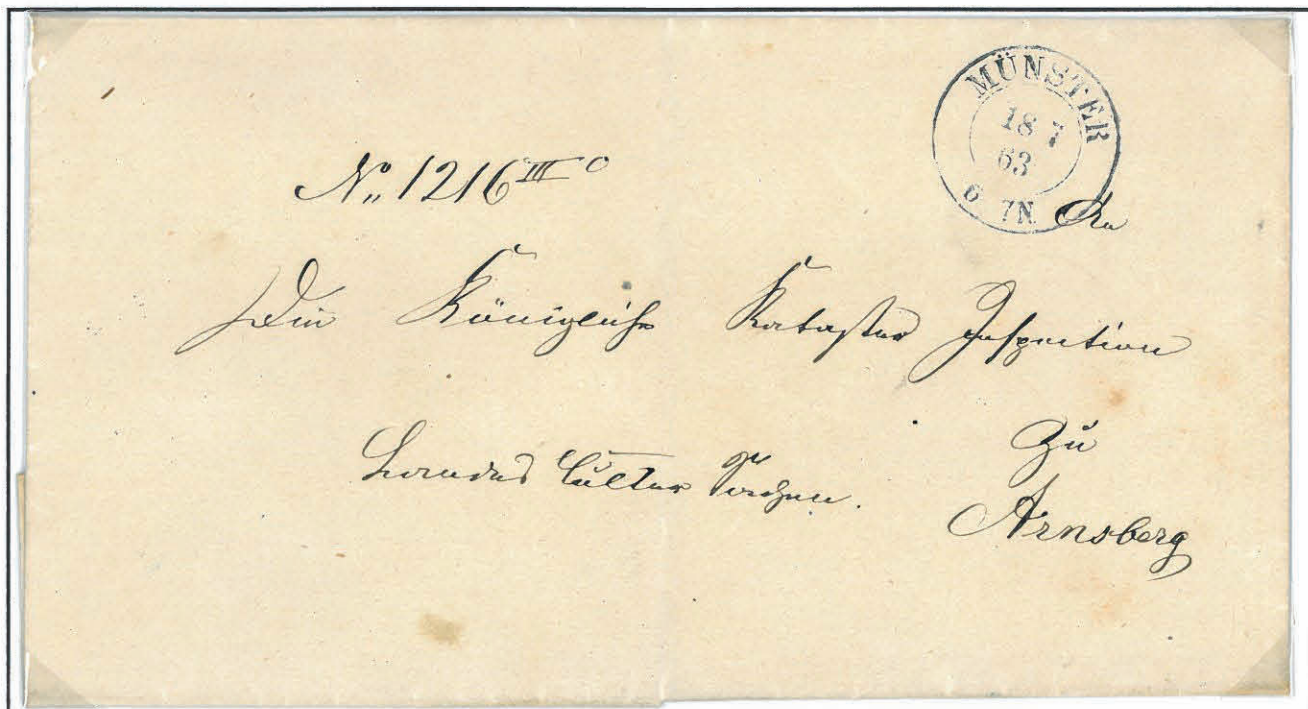 MÜNSTER
18 7
63
6 7N
No 1216 III c
An
Die Königliche Kataster Inspection
zu
Landes Cultur Sachen.
Arnsberg